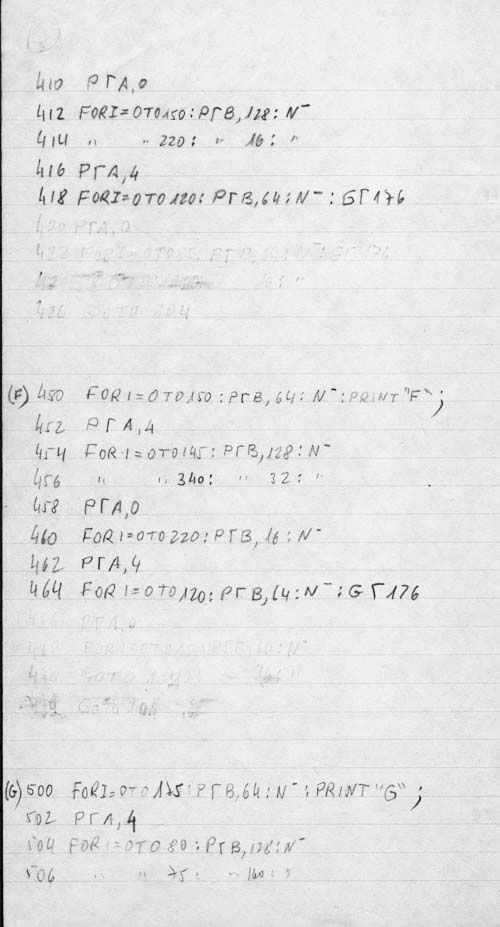 410 PΓA,0
412 FORI=0TO150:PΓB,128:N⁻
414 " " 220: " 16: "
416 PΓA,4
418 FORI=0TO120:PΓB,64:N⁻:GΓ176
420 PΓA,0
422 FORI=0TO GΓ176
426 GOTO
(F) 450 FORI=0TO150:PΓB,64:N⁻:PRINT"F";
452 PΓA,4
454 FORI=0TO145:PΓB,128:N⁻
456 " " 340: " 32: "
458 PΓA,0
460 FORI=0TO220:PΓB,16:N⁻
462 PΓA,4
464 FORI=0TO120:PΓB,64:N⁻:GΓ176
466 PΓA,0
468 FORI=0TO N⁻
(G) 500 FORI=0TO175:PΓB,64:N⁻:PRINT"G";
502 PΓA,4
504 FORI=0TO80:PΓB,128:N⁻
506 " " 75: " 160: "